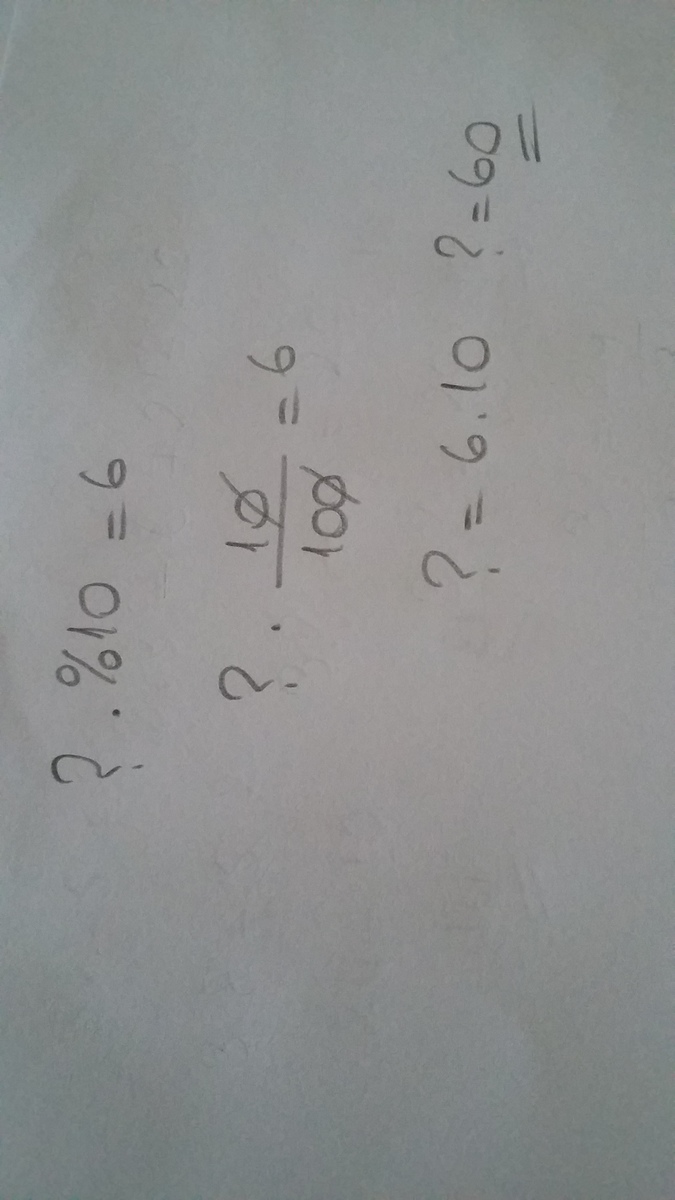 ? . %10 = 6
? . 10/100 = 6
? = 6.10 ? = 60